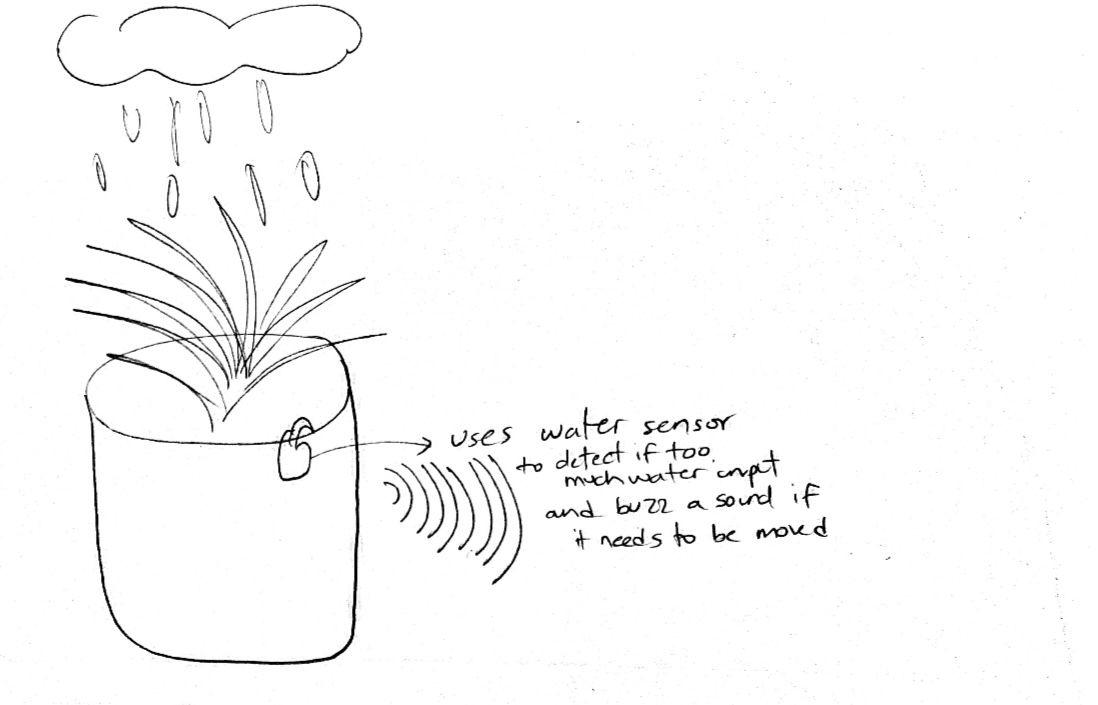 uses water sensor
to detect if too
much water input
and buzz a sound if
it needs to be moved